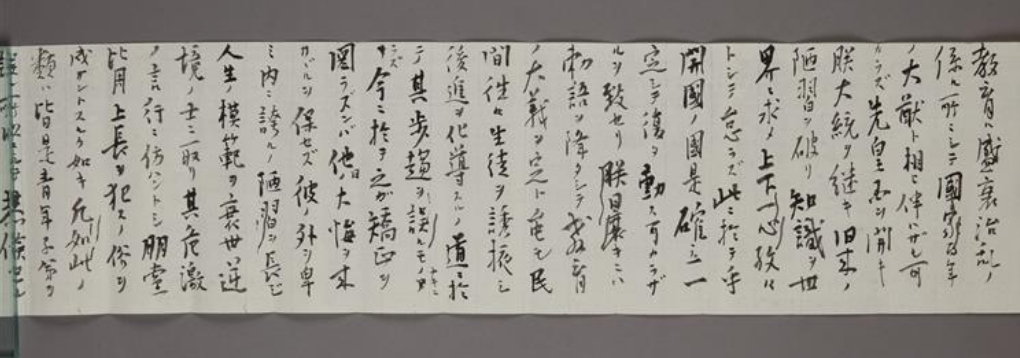 教育ハ盛衰治乱ノ
係ル所ニシテ國家百年
ノ大猷ト相ヒ伴ハザル可
カラズ先皇国ヲ開キ
朕大統ヲ継キ旧来ノ
陋習ヲ破リ知識ヲ世
界ニ求メ上下一心孜々
トシテ怠ラズ此ニ於テ乎
開國ノ國是確立一
定シテ復タ動ス可カラザ
ルヲ致セリ朕曩キニハ
勅語ヲ降タシテ教育
ノ大義ヲ定ト雖モ民
間往々生徒ヲ誘掖シ
後進ヲ化導スルノ道ニ於
テ其歩趨ヲ誤ルモノナキニアラズ
今ニ於テ之ガ矯正ヲ
図ラズンバ他日ノ大悔ヲ来
サザルヲ保セズ彼ノ外ヲ卑
ミ内ニ誇ルノ陋習ヲ長ジ
人生ノ模範ヲ衰世逆
境ノ士ニ取リ其危激
ノ言行ニ仿ハントシ朋党
比周上長ヲ犯スノ俗ヲ
成サントスルガ如キ凡如此ノ
類ハ皆是青年子弟ヲ